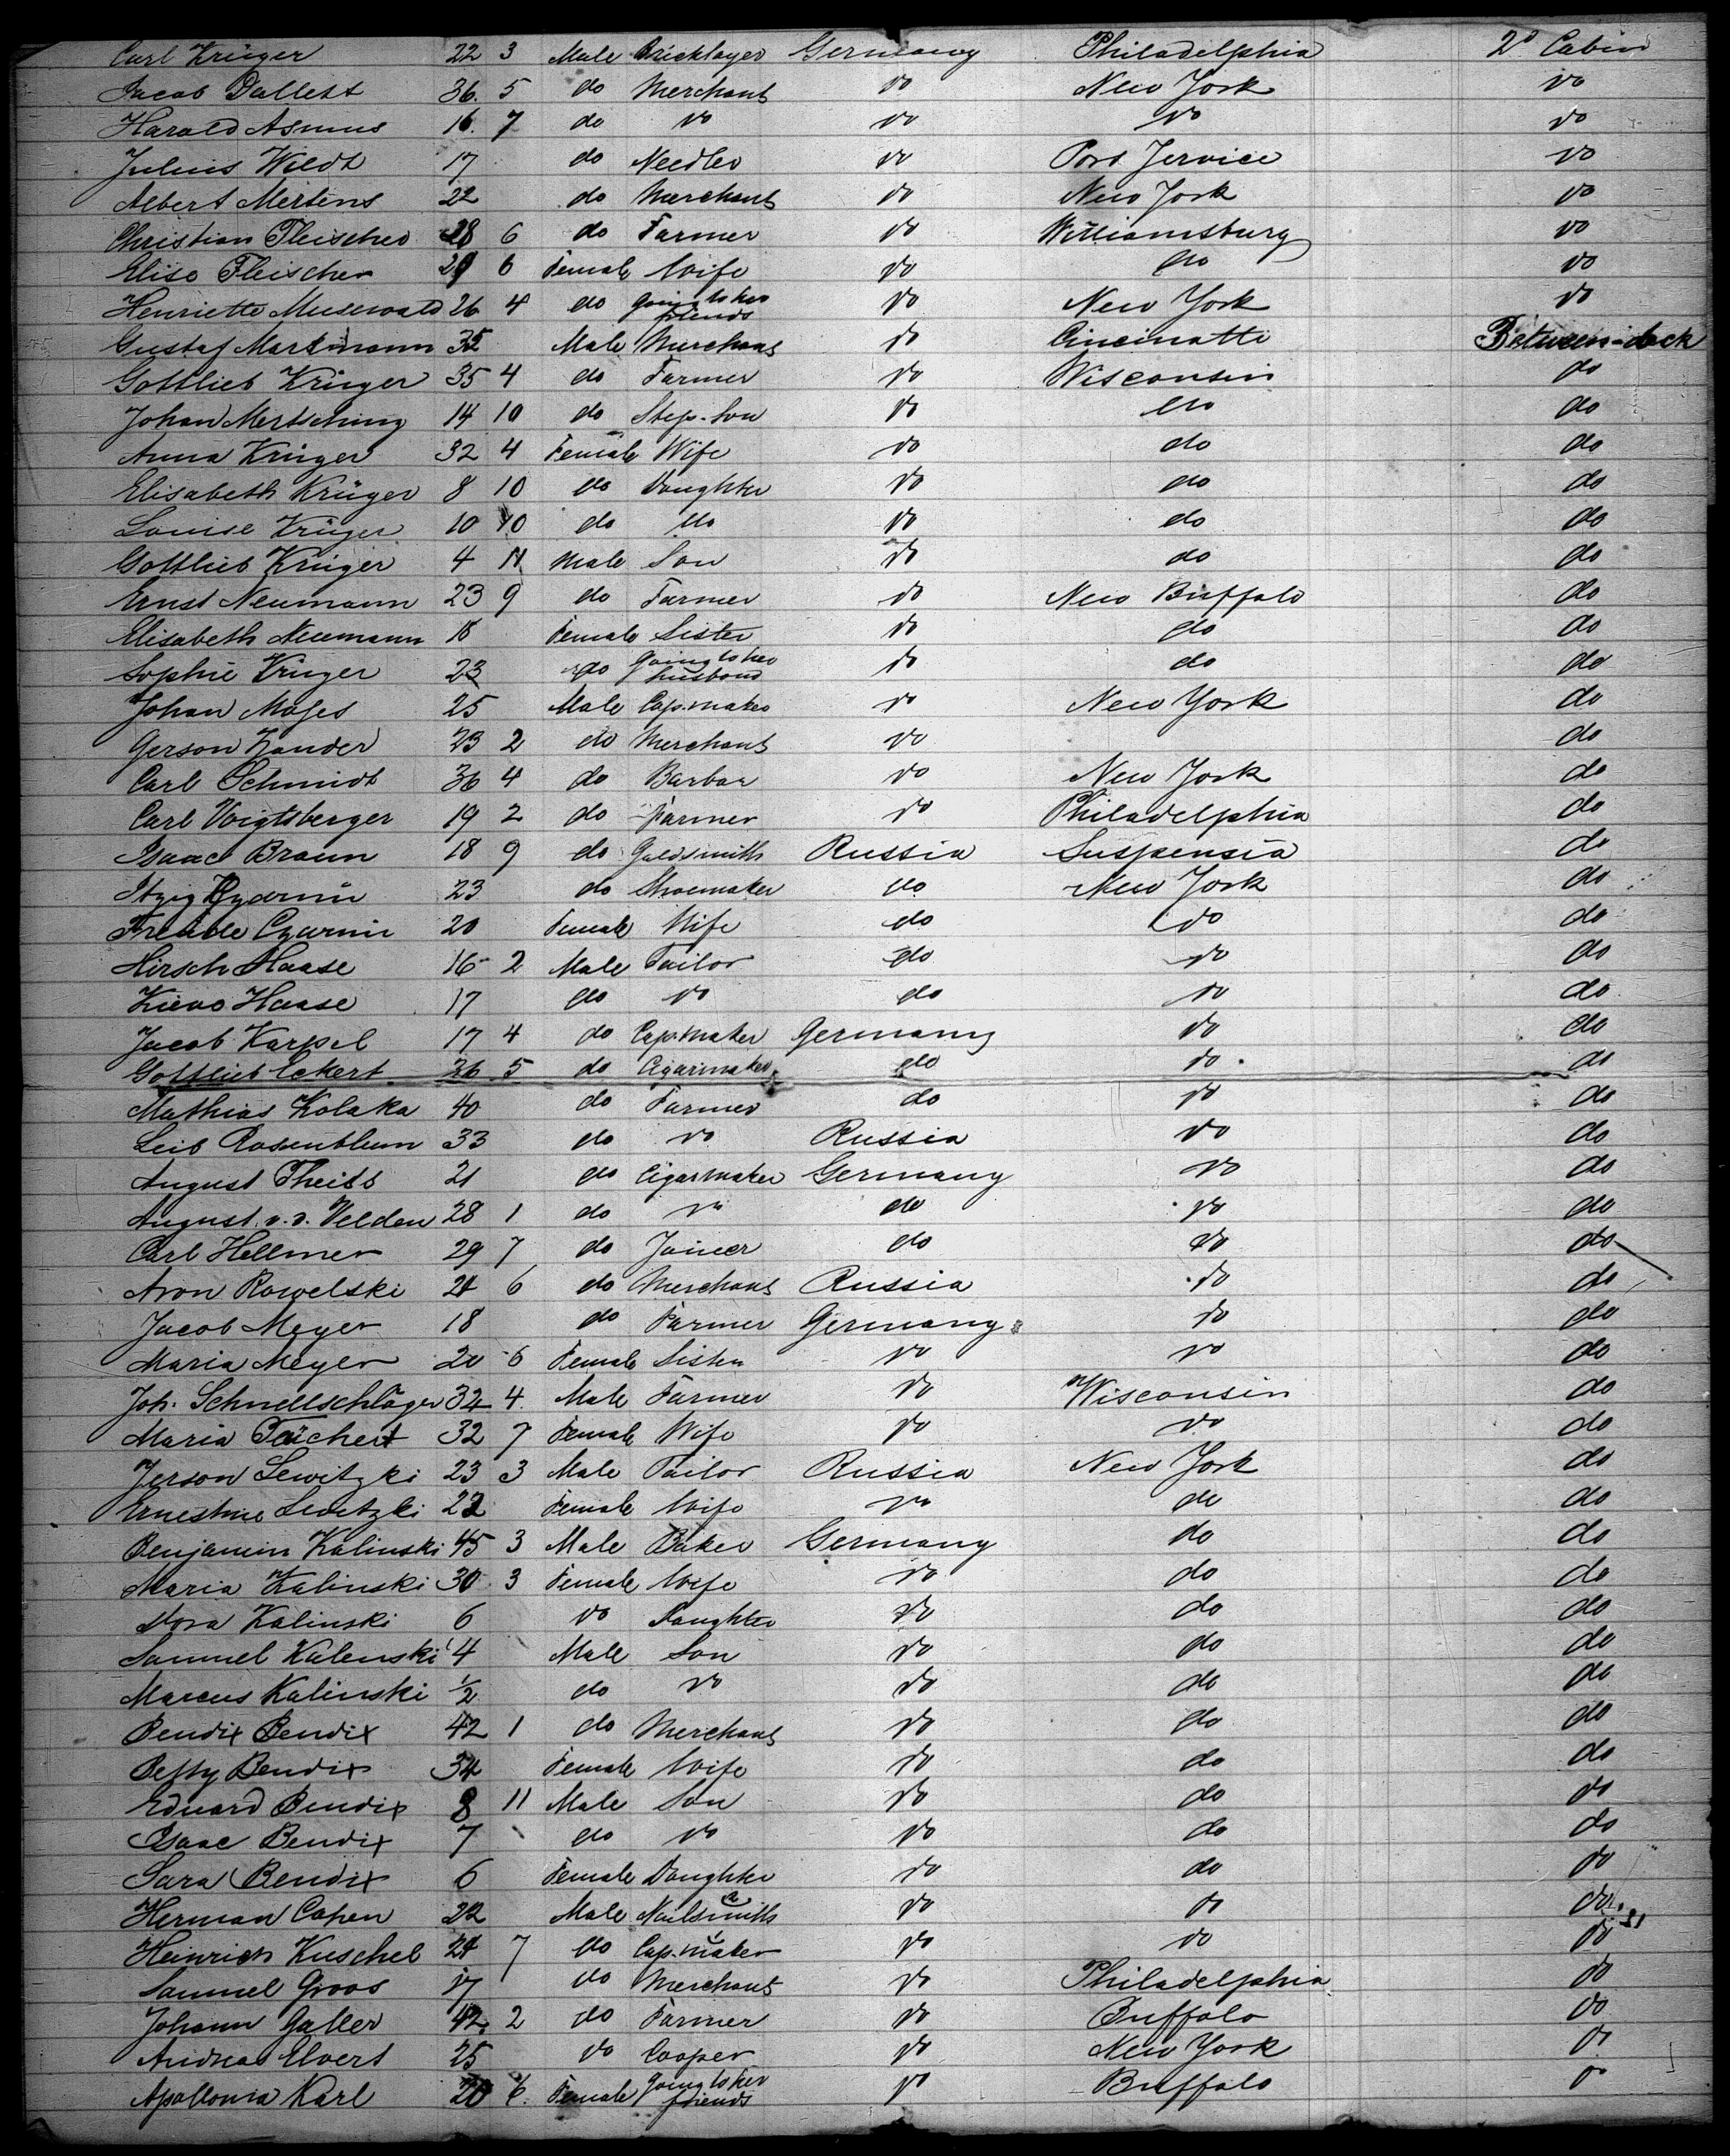 Carl Krüger 22 3 Male Bricklayer Germany Philadelphia 2d Cabin
Jacob Dallett 36. 5 do Merchant do New York do
Harald Asmus 16. 7 do do do do do
Julius Wildt 17 do Needler do Port Jervice do
Albert Mertens 22 do Merchant do New York do
Christian Fleischer 28 6 do Farmer do Williamsburg do
Elise Fleischer 29 6 Female Wife do do do
Henriette Musewald 26 4 do going to her friends do New York do
Gustaf Markmann 35 Male Merchant do Cincinatti Between-deck
Gottlieb Krüger 35 4 do Farmer do Wisconsin do
Johan Mertsching 14 10 do Step-Son do do do
Anna Krüger 32 4 Female Wife do do do
Elisabeth Krüger 8 10 do Daughter do do do
Louise Krüger 10 10 do do do do do
Gottlieb Krüger 4 11 Male Son do do do
Ernst Neumann 23 9 do Farmer do New Buffalo do
Elisabeth Neumann 18 Female Sister do do do
Sophie Krüger 23 do going to her husband do do do
Johan Moses 25 Male Cap.maker do New York do
Gerson Zander 23 2 do Merchant do do
Carl Schmidt 36 4 do Barbar do New York do
Carl Voigtsberger 19 2 do Farmer do Philadelphia do
Isaac Braun 18 9 do Goldsmith Russia Suspensia do
Itzig 23 do Shoemaker do New York do
Czarni 20 Female Wife do do do
Hirsch Haase 16 2 Male Tailor do do do
Haase 17 do do do do do
Jacob Karpel 17 4 do Cap.maker Germany do do
Gottlieb Eckert 26 5 do Cigarmaker do do do
Mathias Kolaka 40 do Farmer do do do
Leib Rosenblum 33 do do Russia do do
August Theiss 21 do Cigarmaker Germany do do
August v. d. Velden 28 1 do do do do do
Carl Hellmer 29 7 do Joiner do do do
Aron Rowelski 24 6 do Merchant Russia do do
Jacob Meyer 18 do Farmer Germany do do
Maria Meyer 20 6 Female Sister do do do
Joh. Schnellschläger 32 4. Male Farmer do Wisconsin do
Maria Teichert 32 7 Female Wife do do do
Jerson Lewitzki 23 3 Male Tailor Russia New York do
Ernestine Lewitzki 22 Female Wife do do do
Benjamin Kalinski 45 3 Male Baker Germany do do
Maria Kalinski 30 3 Female Wife do do do
Dora Kalinski 6 do Daughter do do do
Samuel Kalenski 4 Male Son do do do
Marcus Kalinski 1/2 do do do do do
Bendix Bendix 42 1 do Merchant do do do
Betty Bendix 34 Female Wife do do do
Eduard Bendix 8 11 Male Son do do do
Isaac Bendix 7 do do do do do
Sara Bendix 6 Female Daughter do do do
Herman Cohen 22 Male Nailsmith do do do
Heinrich Kuschel 24 7 do Cap.maker do do do
Samuel Groos 17 do Merchant do Philadelphia do
Johann Galler 42 2 do Farmer do Buffalo do
Andreas Elvert 25 do Cooper do New York do
Apollonia Karl 20 6. Female going to her friends do Buffalo do